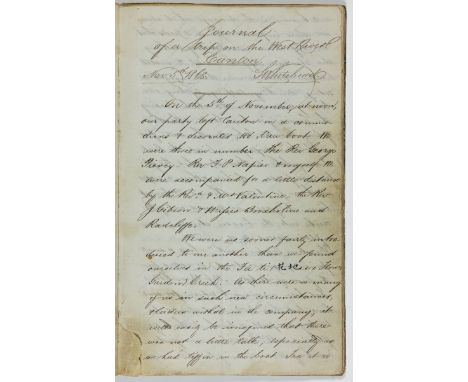 Journal
of a trip on the West River
Canton
Nov 5th 1866. S Whitehead
On the 5th of November, at noon,
our party left Canton in a commo-
dious & decorated Ho Tau boat. We
were three in number the Rev George
Piercy Rev F P Napier & myself. We
were accompanied for a little distance
by the Revd & Mrs Valentine, the Rev
J Gibson & Misses Broxholme and
Radcliffe.
We were no sooner fairly intro-
duced to one another than we found
ourselves in the Fa Ti or Flower
Garden Creek. As there were so many
of us in such new circumstances,
strangers withal in the company, it
will easily be imagined that there
was not a little talk, especially as
we had tiffin in the boat. Tea it is